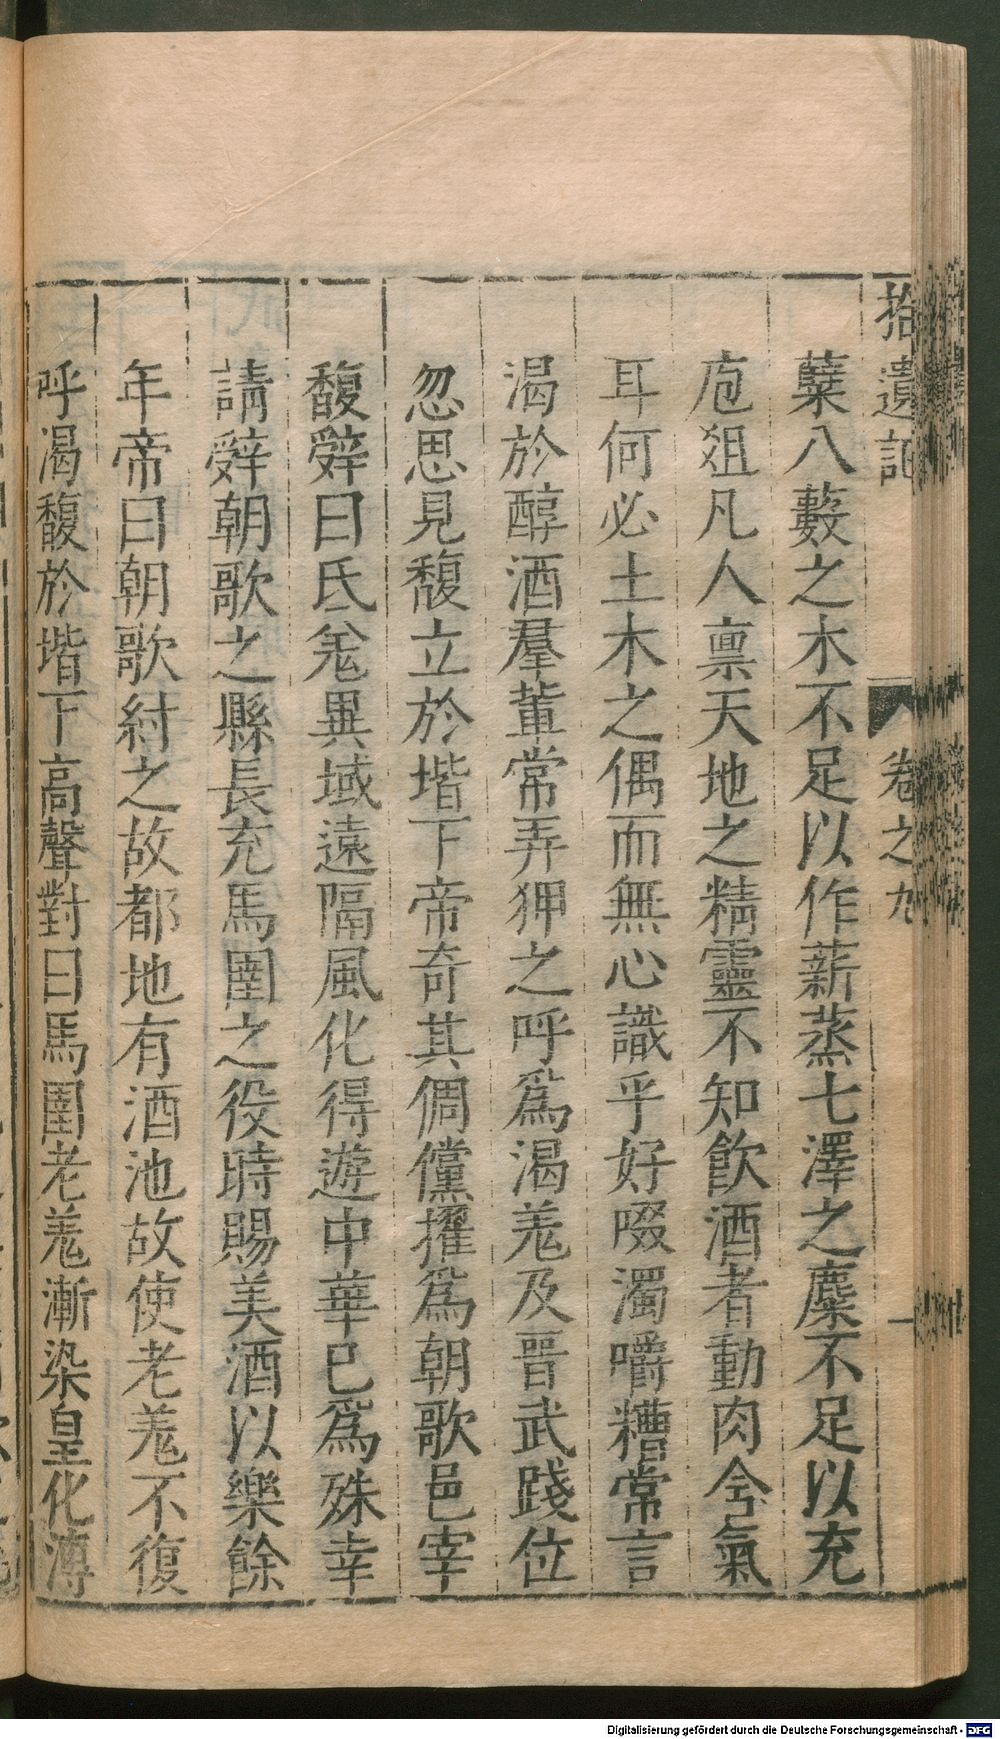 拾遺記
卷之九
一
蘖八藪之木不足以作薪蒸七澤之麋不足以充
庖俎凡人禀天地之精靈不知飲酒者動肉含氣
耳何必土木之偶而無心識乎好啜濁嚼糟常言
渴於醇酒羣輩常弄狎之呼爲渴羌及晋武踐位
忽思見馥立於堦下帝奇其倜儻擢爲朝歌邑宰
馥辤曰氐羌異域遠隔風化得遊中華已爲殊幸
請辤朝歌之縣長充馬圉之役時賜美酒以樂餘
年帝曰朝歌紂之故都地有酒池故使老羌不復
呼渴馥於堦下高聲對曰馬圉老羌漸染皇化溥
Digitalisierung gefördert durch die Deutsche Forschungsgemeinschaft - DFG